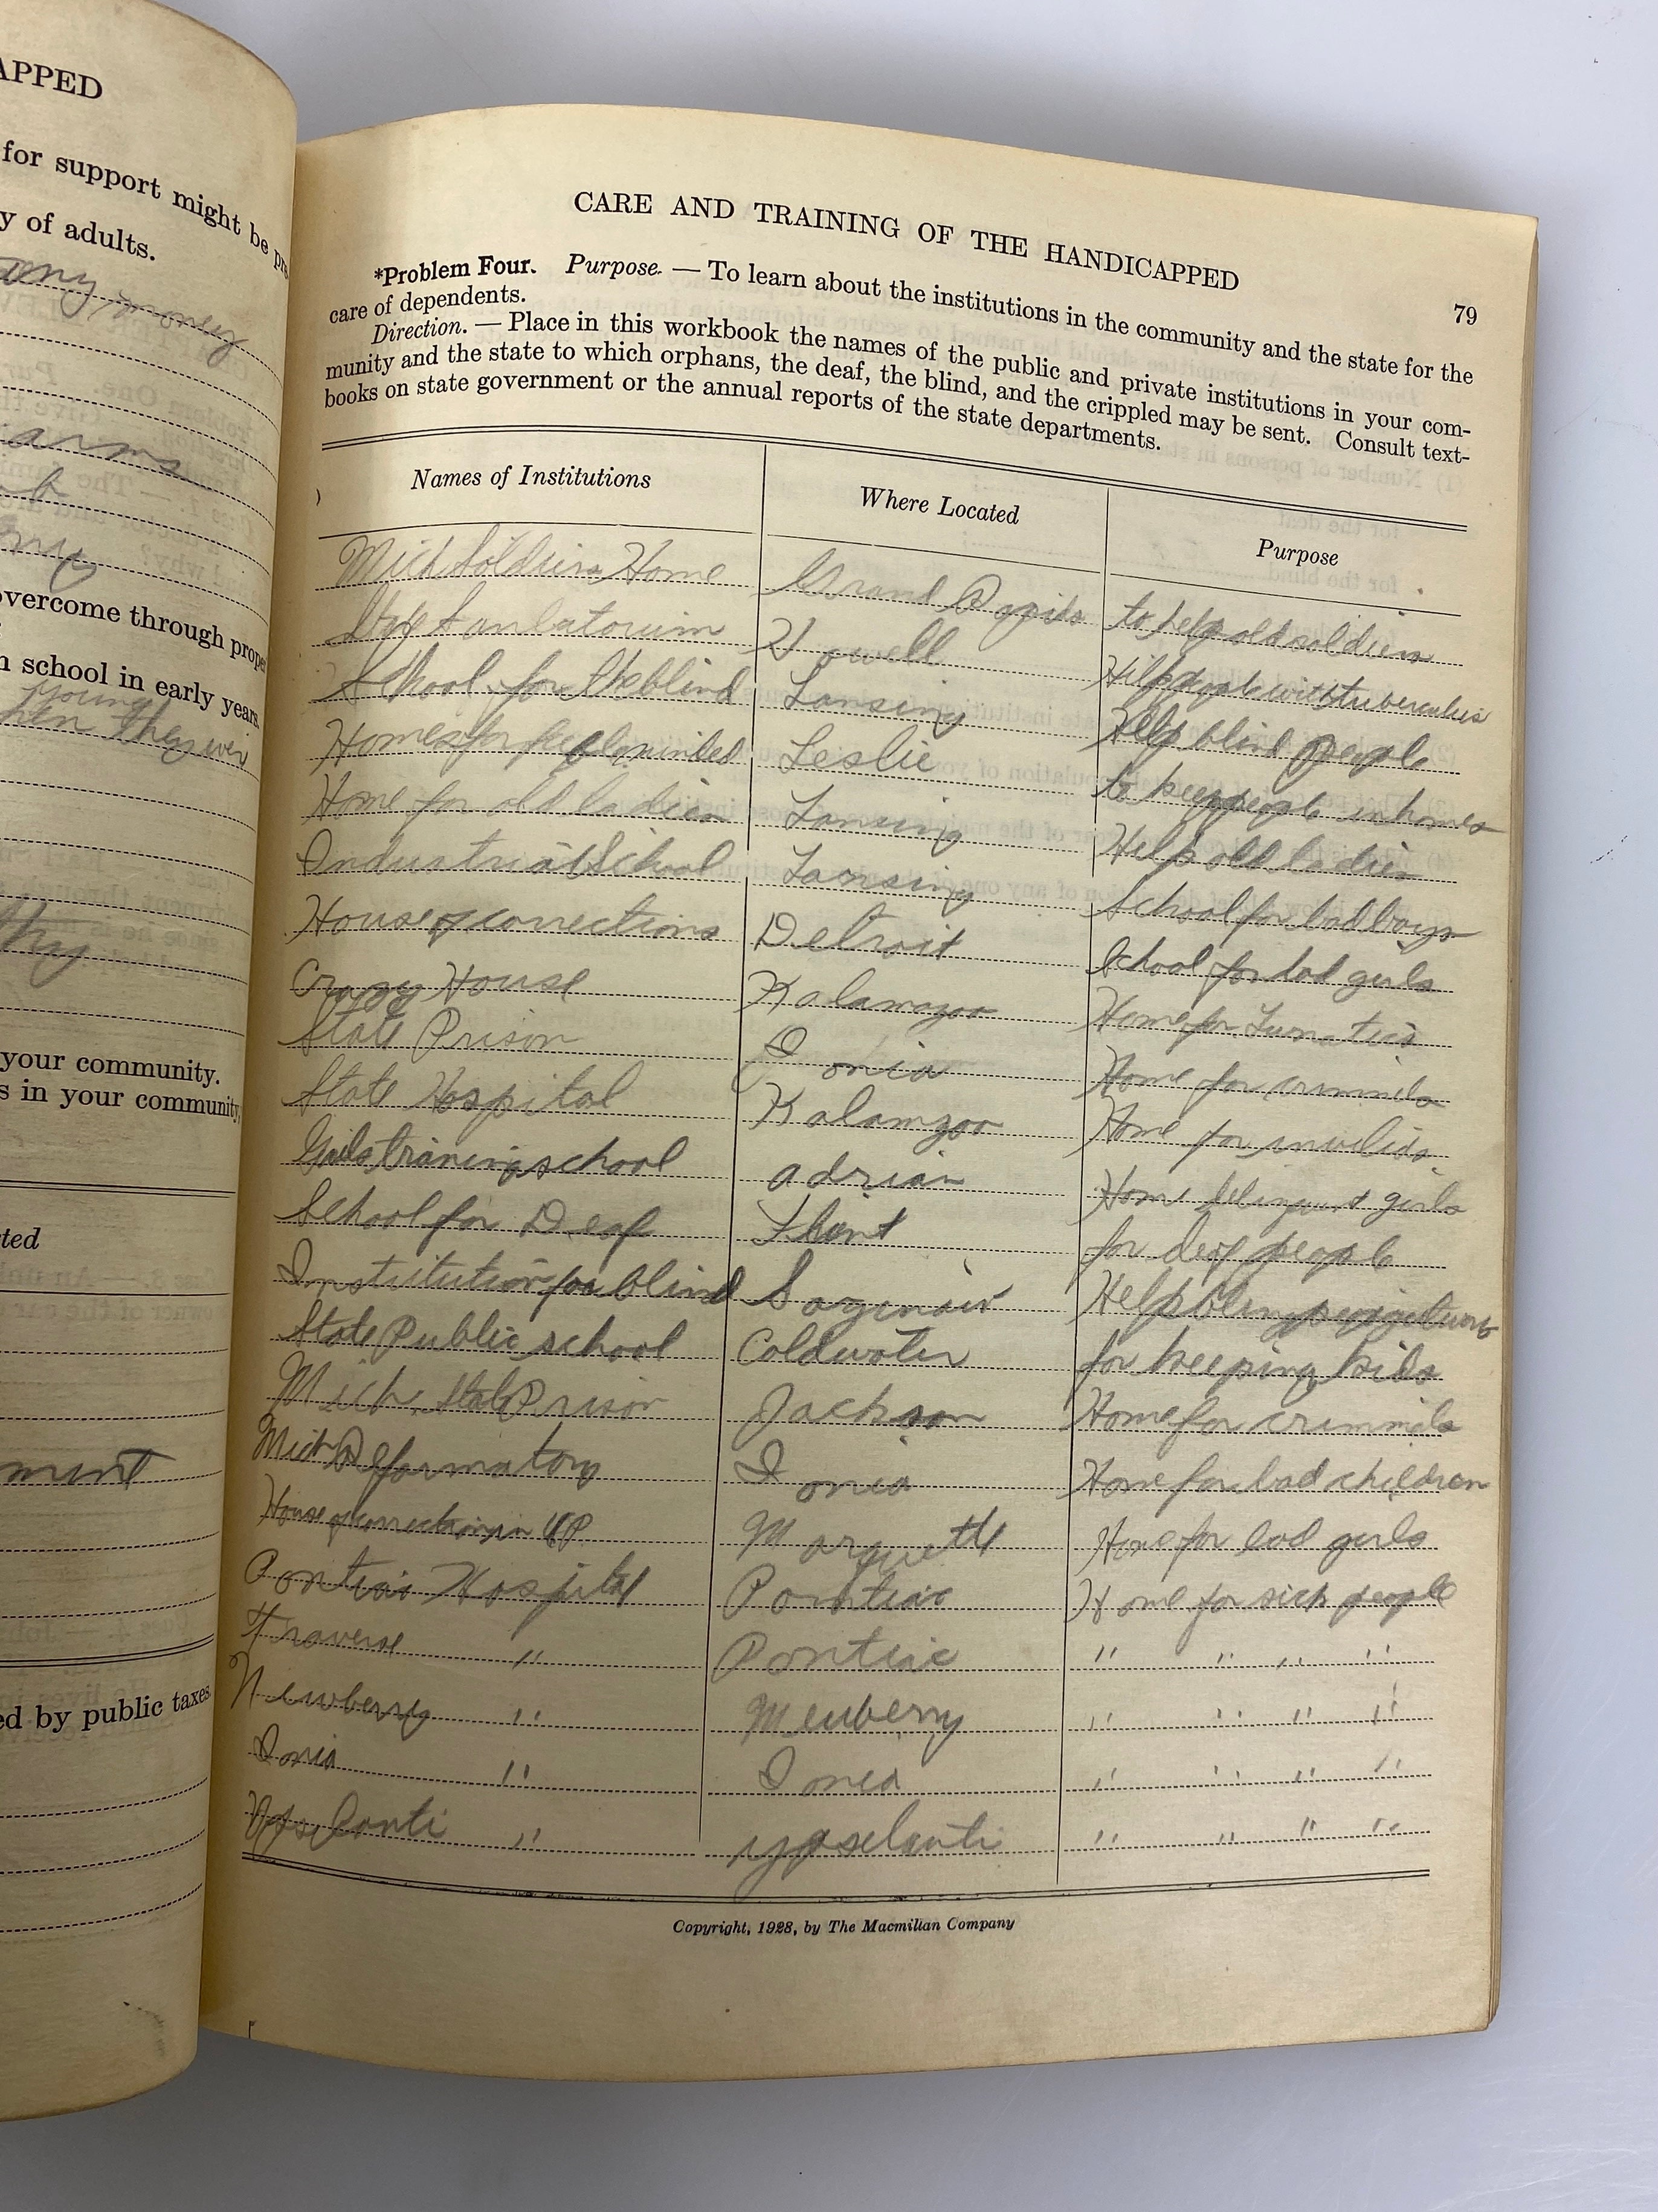 APPED
for support might be pr
y of adults.
any money
arms
overcome through prope
n school in early years.
young
when they wer
they
your community.
s in your community,
ted
ment
ed by public taxes.
CARE AND TRAINING OF THE HANDICAPPED
79
*Problem Four. Purpose. — To learn about the institutions in the community and the state for the
care of dependents.
Direction. — Place in this workbook the names of the public and private institutions in your com-
munity and the state to which orphans, the deaf, the blind, and the crippled may be sent. Consult text-
books on state government or the annual reports of the state departments.
Names of Institutions Where Located Purpose
Mich Soldiers Home Grand Rapids to help old soldiers
Howell Help people with tuberculus
School for the blind Lansing Help blind people
Homes for feeble minded Leslie to keep people in homes
Home for old ladies Lansing Help old ladies
Industrial School Lansing School for bad boys
House of corrections Detroit School for bad girls
Crazy House Kalamazoo Home for Lunatics
State Prison Ionia Home for criminals
State Hospital Kalamzoo Home for invalids.
Girls training school adrian Home girls
School for Deaf Flint for deaf people
Institution for blind Saginaw Help
State Public school Coldwater for keeping kids
Mich. State Prison Jackson Home for criminals
Mich Reformatory Ionia Home for bad children
House of corrections in UP Marquette Home for bad girls
Pontiac Hospital Pontiac Home for sick people
Traverse " Pontiac " " " "
Newberry " Newberry " " " "
Ionia " Ionia " " " "
Ypsilanti " ypsilanti " " " "
Copyright, 1928, by The Macmillan Company